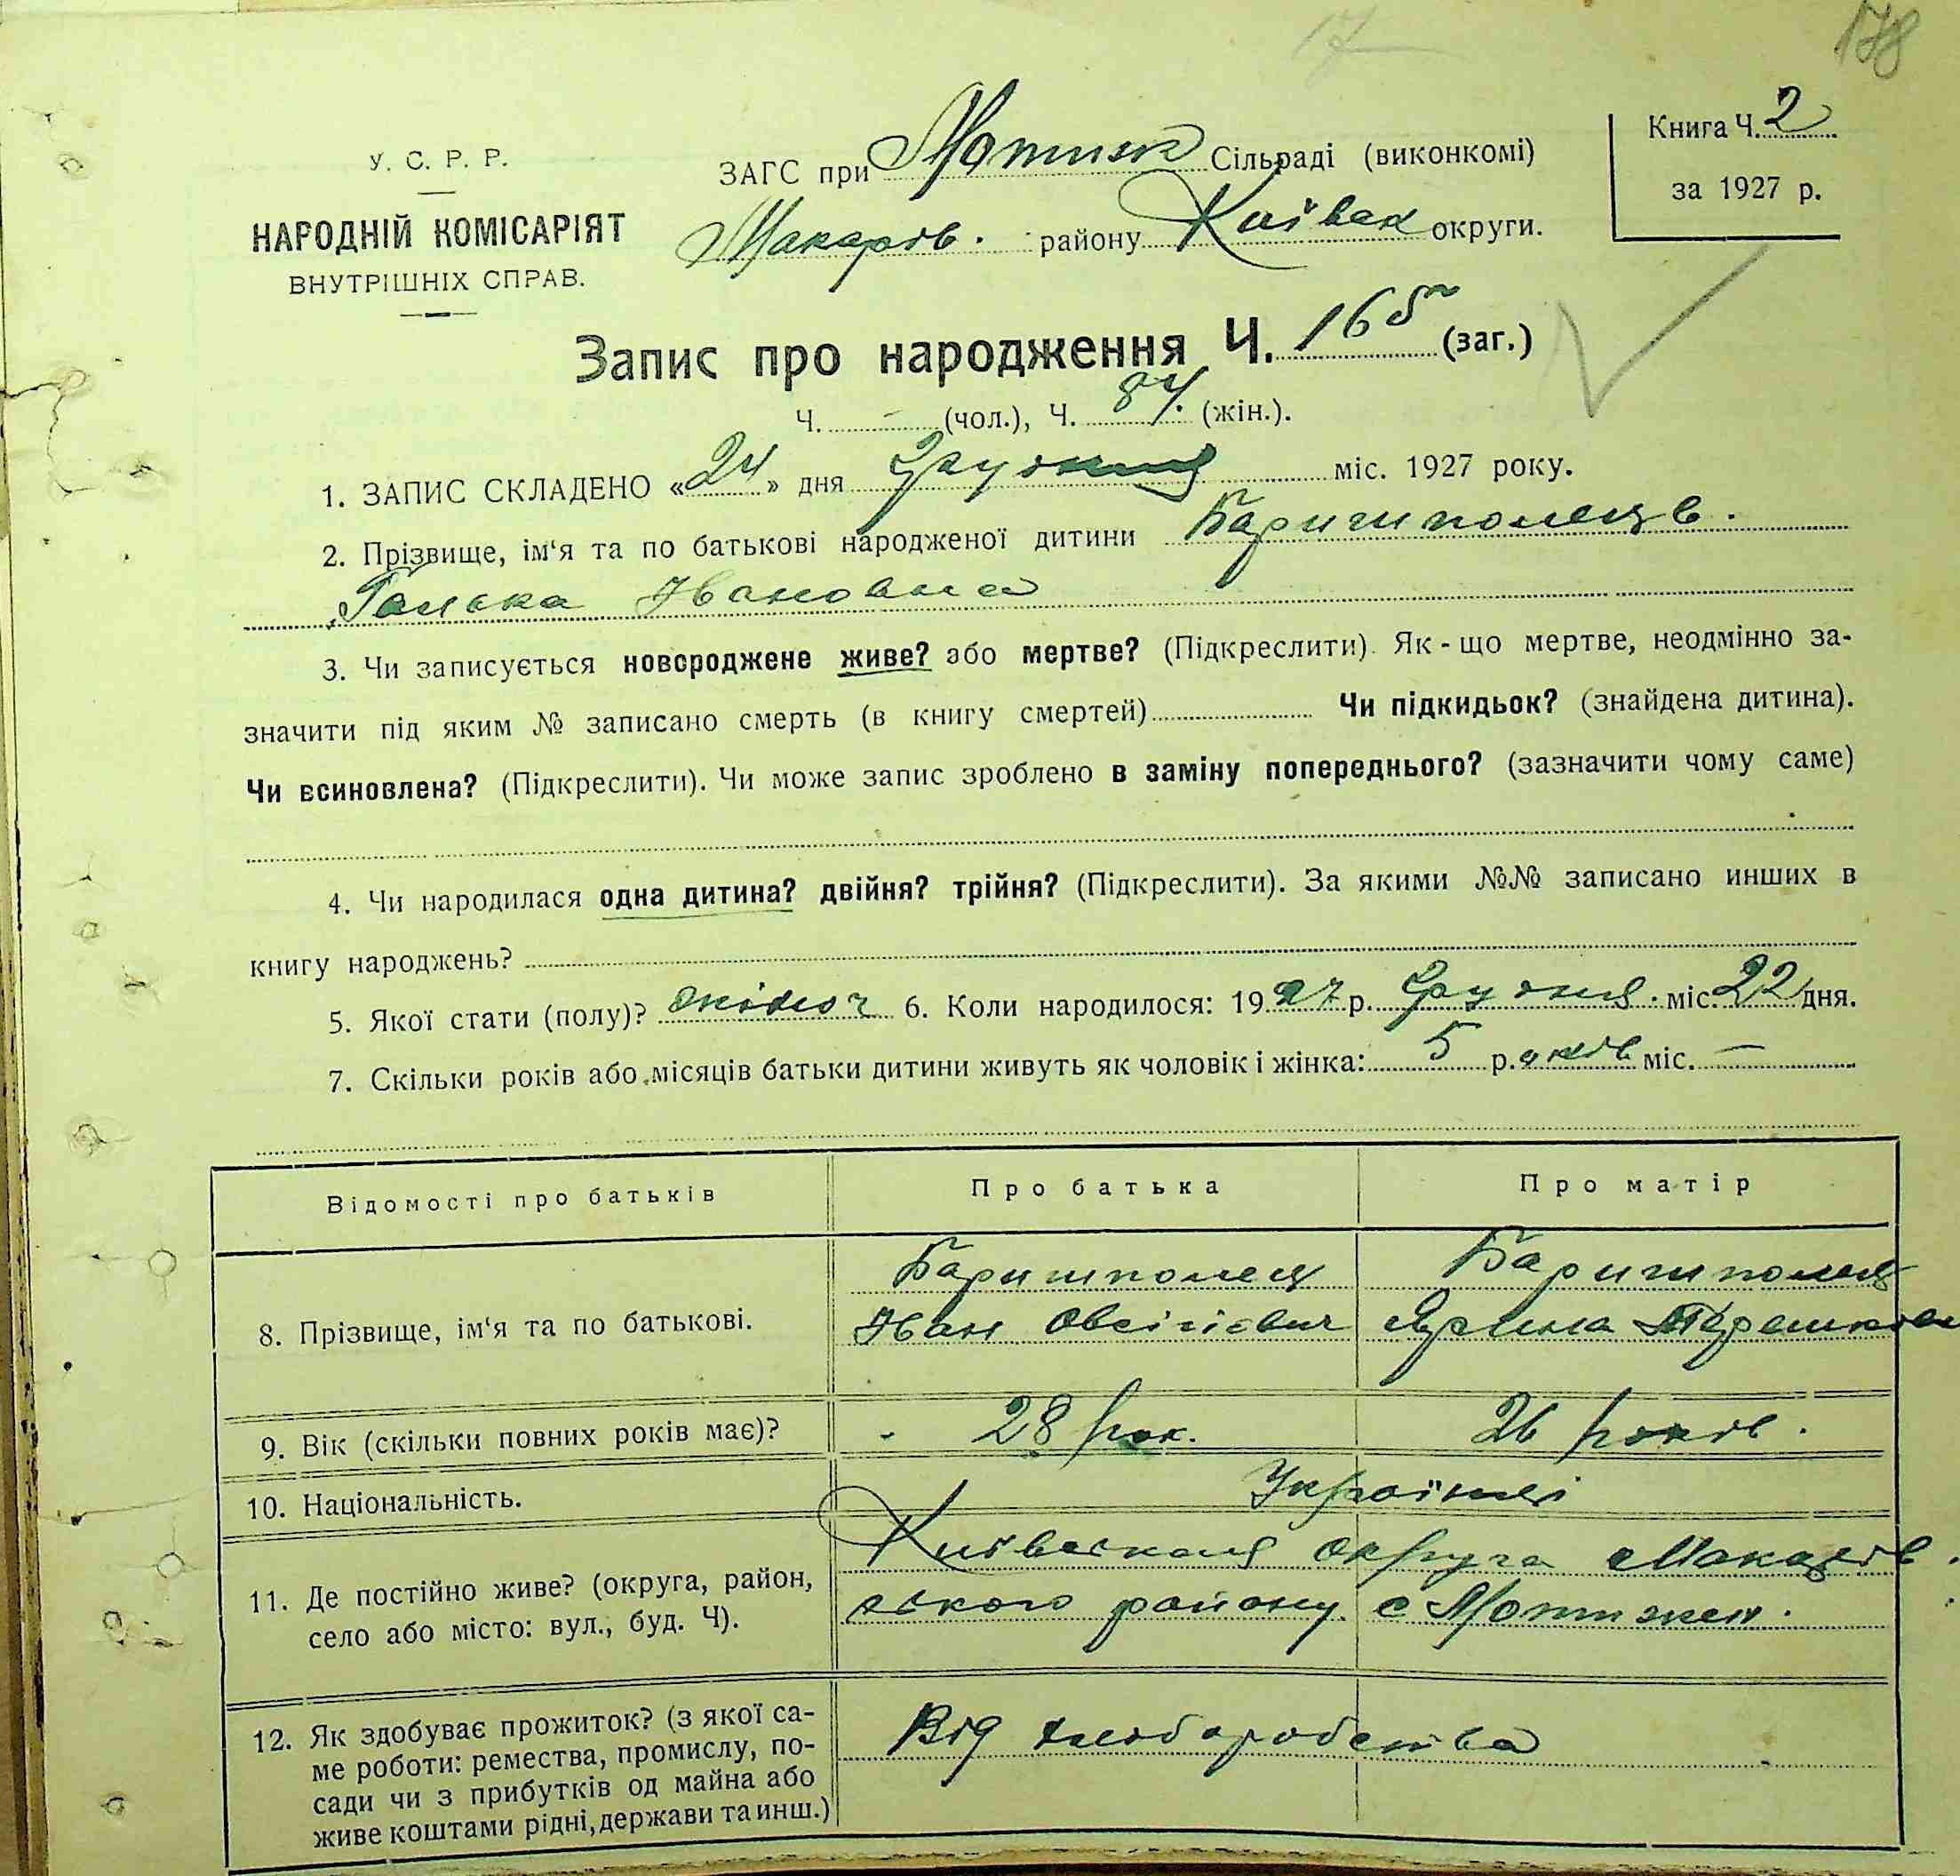 17
178
У. С. Р. Р.
НАРОДНІЙ КОМІСАРІЯТ
ВНУТРІШНІХ СПРАВ.
ЗАГС при Мотиж Сільраді (виконкомі)
Макарів. району Київськ округи.
Книга Ч. 2
за 1927 р.
Запис про народження Ч. 165 (заг.)
Ч. – (чол.), Ч. 84. (жін.).
1. ЗАПИС СКЛАДЕНО «24» дня Грудня міс. 1927 року.
2. Прізвище, ім‘я та по батькові народженої дитини Баришполець.
Галька Івановна
3. Чи записується новороджене живе? або мертве? (Підкреслити). Як-що мертве, неодмінно за-
значити під яким № записано смерть (в книгу смертей) Чи підкидьок? (знайдена дитина).
Чи всиновлена? (Підкреслити). Чи може запис зроблено в заміну попереднього? (зазначити чому саме)
4. Чи народилася одна дитина? двійня? трійня? (Підкреслити). За якими №№ записано инших в
книгу народжень?
5. Якої стати (полу)? жіноч 6. Коли народилося: 1927 р. Грудня. міс. 22 дня.
7. Скільки років або місяців батьки дитини живуть як чоловік і жінка: 5 р.оків міс. –
Відомості про батьків Про батька Про матір
8. Прізвище, ім‘я та по батькові.
Баришполец
Іван Овсійович
Баришполец
Ярина
9. Вік (скільки повних років має)? 28 рок. 26 років.
10. Національність. Українці
11. Де постійно живе? (округа, район,
село або місто: вул., буд. Ч).
Київська округа Макарів
ського району с Мотижен.
12. Як здобуває прожиток? (з якої са-
ме роботи: ремества, промислу, по-
сади чи з прибутків од майна або
живе коштами рідні, держави та инш.)
Від хліборобства